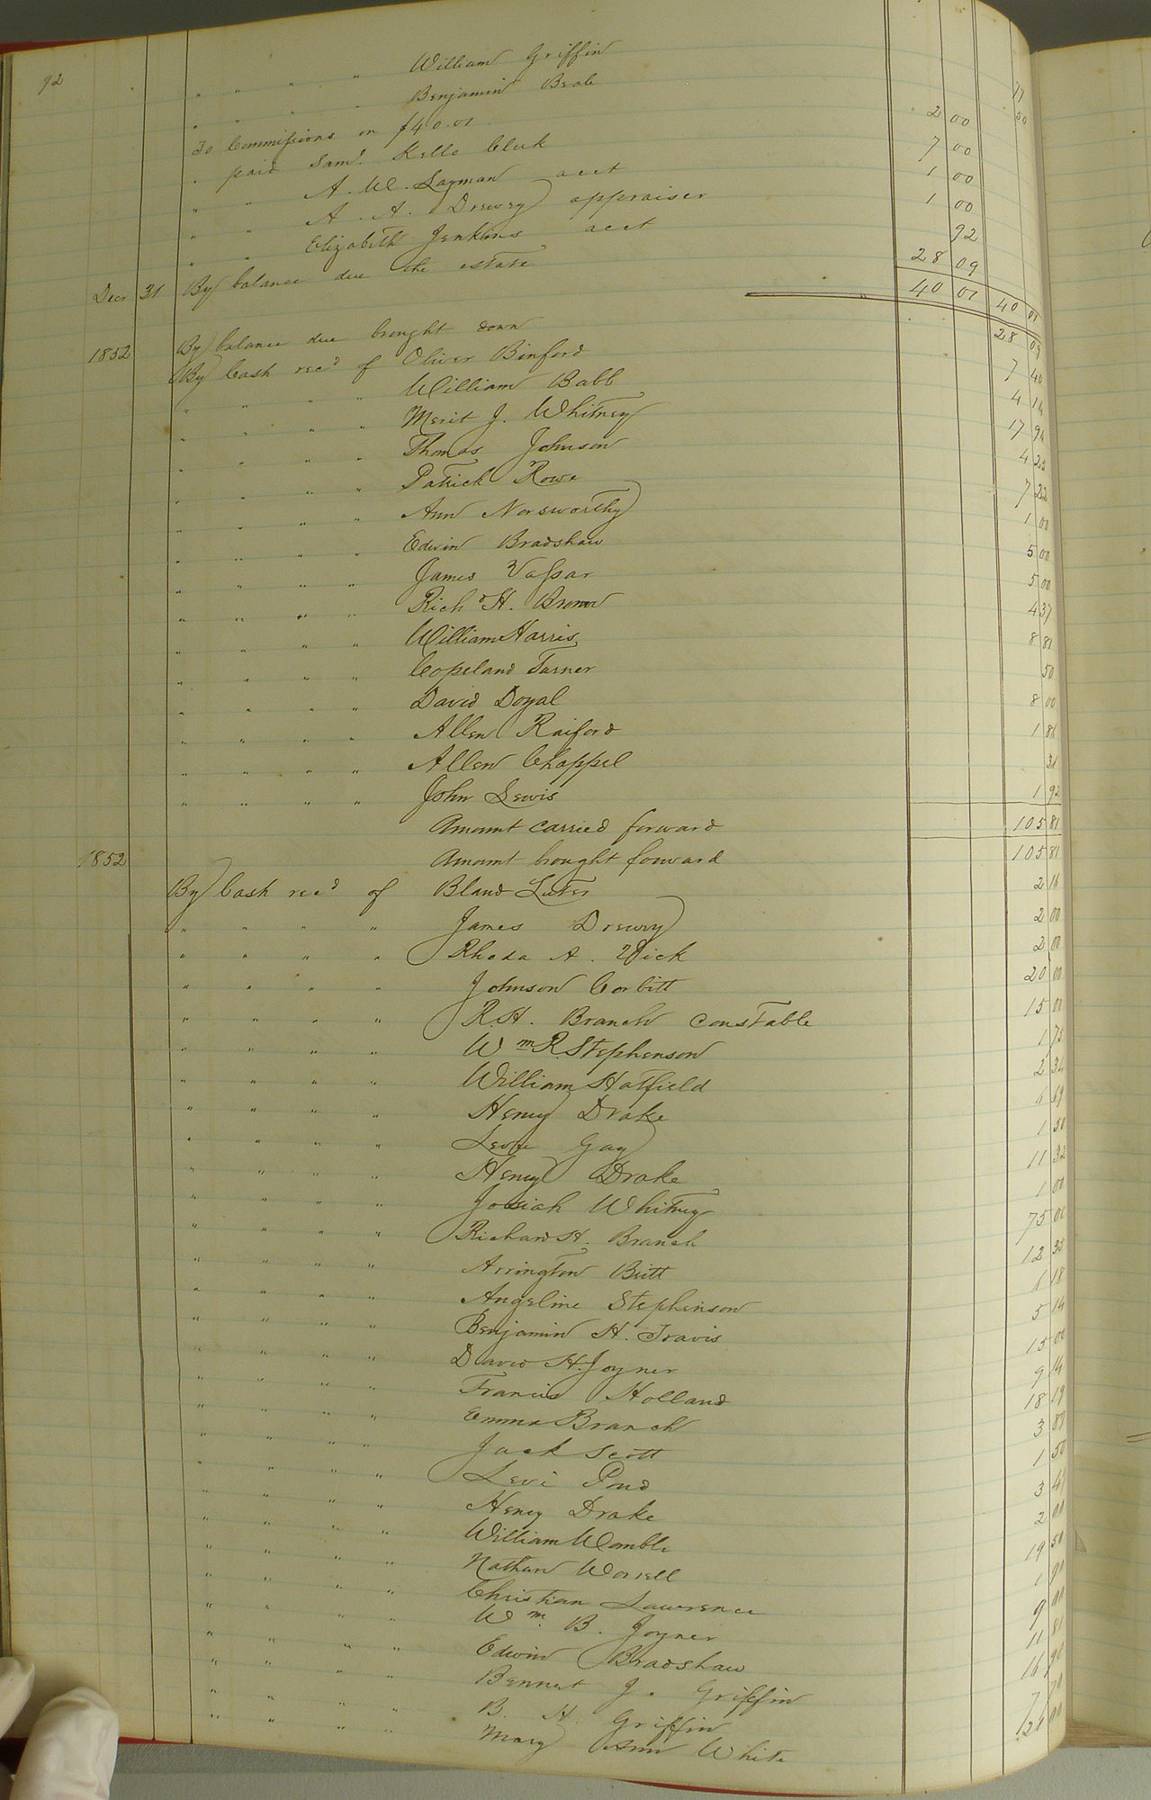 92
" " " " William Griffin 17
" " " " Benjamin Beale 50
To Commissions on $40.01 2 00
" paid Saml. Kello Clerk 7 00
" " A. W. Layman acct 1 00
" " A. A. Drewry appraiser 1 00
" " Elizabeth Jenkins acct 92
Decr 31 By balance due the estate 28 09
40 01 40 01
1852 By balance due brought down 28 09
By Cash recd of Oliver Binford 7 40
" " " " William Babb 4 14
" " " " Merit J. Whitney 17 94
" " " " Thomas Johnson 4 25
" " " " Patrick Rowe 7 22
" " " " Ann Norsworthy 1 00
" " " " Edwin Bradshaw 5 00
" " " " James Vassar 5 00
" " " " Richd H. Brown 4 37
" " " " William Harris 8 81
" " " " Copeland Turner 50
" " " " David Doyal 8 00
" " " " Allen Raiford 1 86
" " " " Allen Chappel 31
" " " " John Lewis 1 92
Amount carried forward 105 81
1852 Amount brought forward 105 81
By Cash recd of Bland Luter 2 16
" " " " James Drewry 2 00
" " " " Rheda A. Vick 2 00
" " " " Johnson Corbitt 20 00
" " " " R.H. Branch constable 15 00
" " " " Wm R. Stephenson 1 75
" " " " William Hatfield 2 34
" " " " Henry Drake 69
" " " " Gay 1 50
" " " " Henry Drake 11 32
" " " " Josiah Whitney 1 00
" " " " Richard H. Branch 75 00
" " " " Arrington Britt 12 35
" " " " Angeline Stephinson 18
" " " " Benjamin H. Travis 5 14
" " " " David H. Joyner 15 00
" " " " Francis Holland 9 14
" " " " Emma Branch 18 19
" " " " Jack Scott 3 80
" " " " Levi Pond 1 50
" " " " Henry Drake 3
" " " " William Womble 2 00
" " " " Nathan Worrell 19 50
" " " " Christian Lawrence 1
" " " " Wm. B. Joyner 9 00
" " " " Edwin Bradshaw 11 81
" " " " Bennet J. Griffin 16
" " " " B. H. Griffin 7
" " " " Mary Ann White